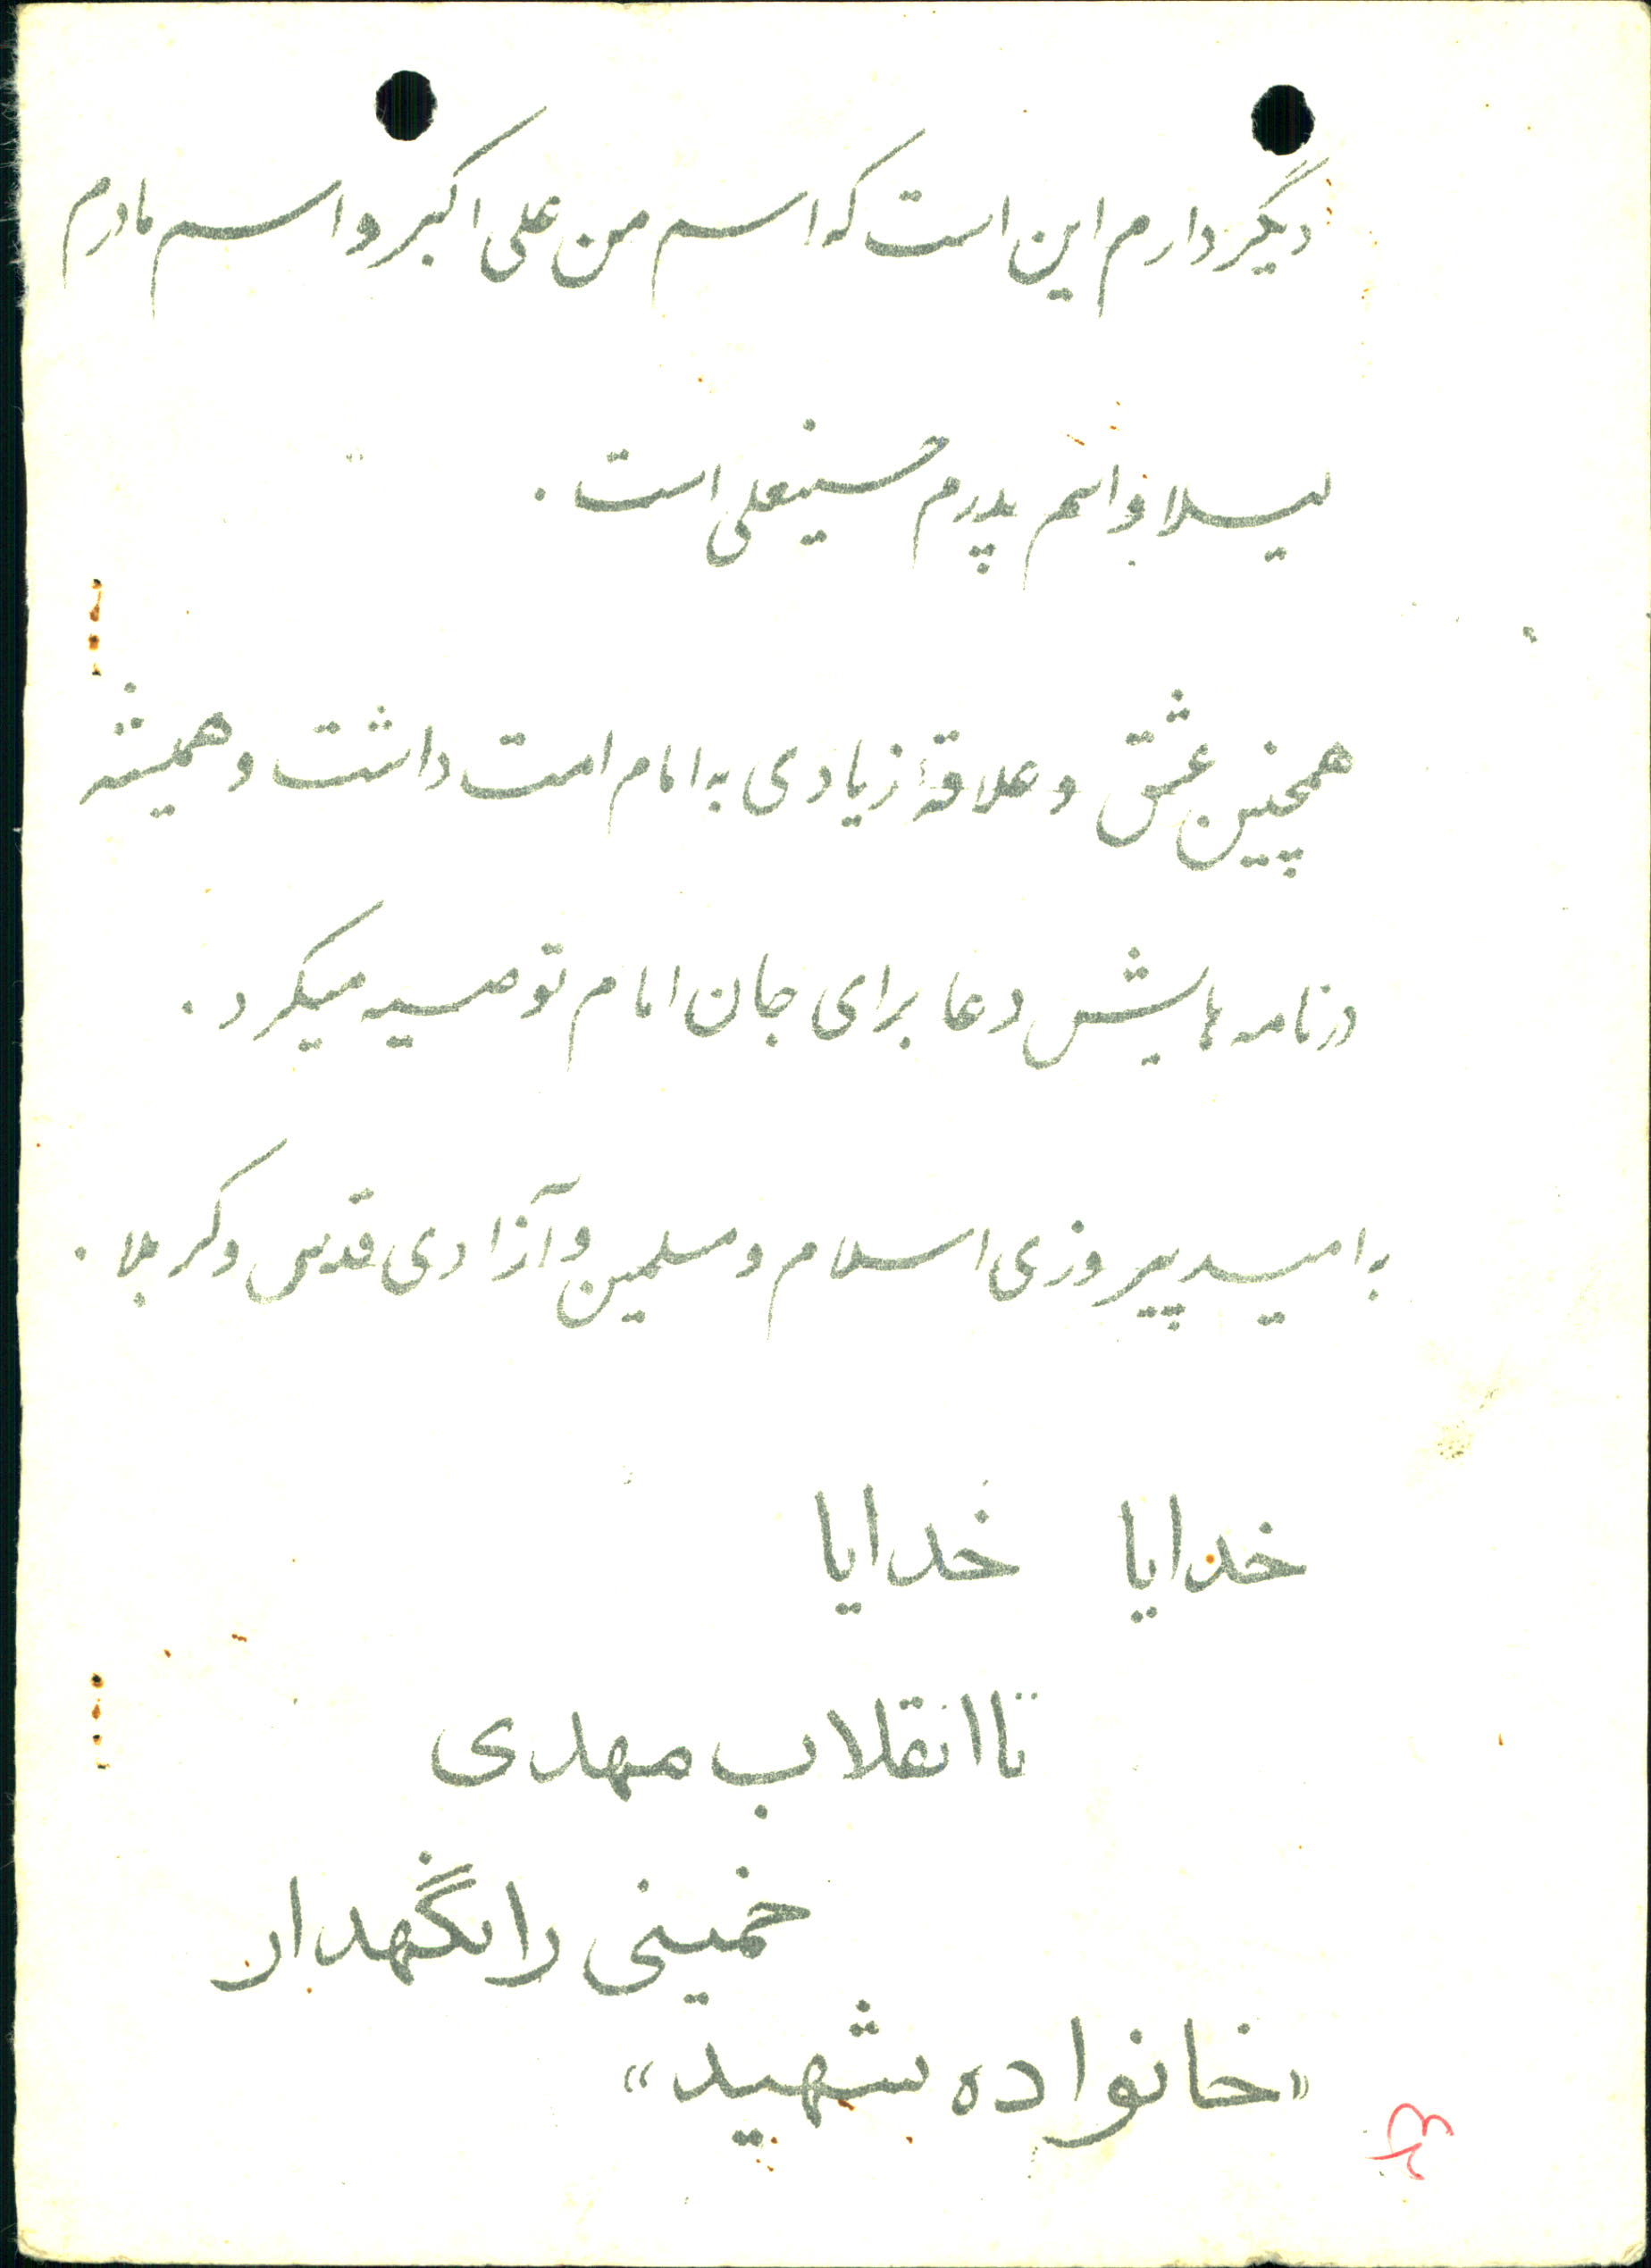 دیگر دارم این است که اسم من علی اکبر و اسم مادرم
لیلا و اسم پدرم حسینعلی است.
همچنین عشق و علاقهٔ زیادی به امام امت داشت و همیشه
در نامه هایش دعا برای جان امام توصیه میکرد.
به امید پیروزی اسلام و مسلمین و آزادی قدس و کربلا.
خدایا خدایا
تا انقلاب مهدی
خمینی را نگهدار
«خانواده شهید»